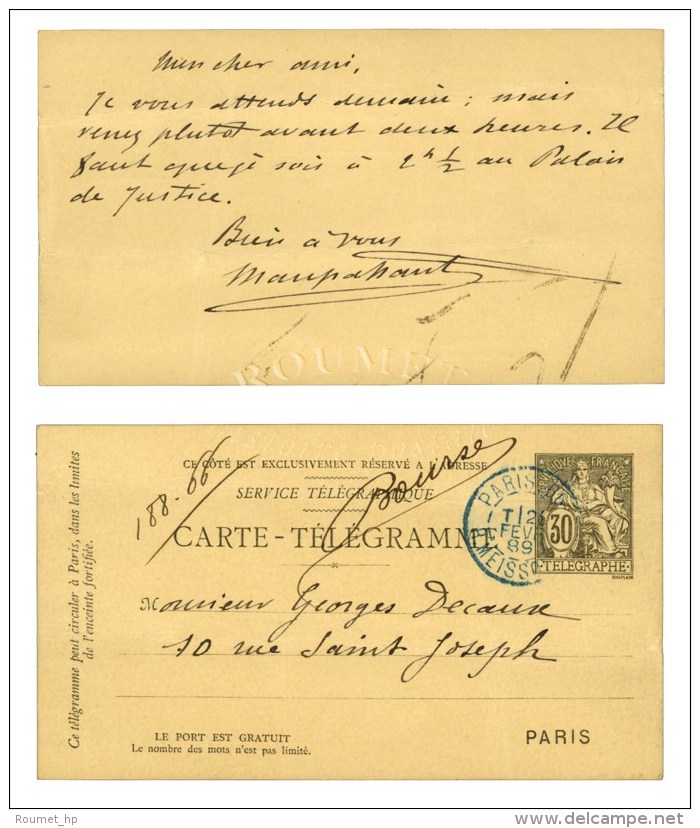 Mon cher ami,
Je vous attends demain ; mais
venez plutot avant deux heures. Il
faut que je sois à 2h 1/2 au Palais
de Justice.
Bien à vous
Maupassant
ROUMET
CE CÔTÉ EST EXCLUSIVEMENT RÉSERVÉ A L'ADRESSE
SERVICE TÉLÉGRAPHIQUE
CARTE-TÉLÉGRAMME
188.66
Bourse
Monsieur Georges Decaux
10 rue Saint Joseph
Ce télégramme peut circuler à Paris, dans les limites
de l'enceinte fortifiée.
LE PORT EST GRATUIT
Le nombre des mots n'est pas limité.
PARIS
RÉPUBLIQUE FRANÇAISE
30
TELEGRAPHE
CHAPLAIN
PARIS
FEVR
89
MEISSO
Roumet_hp
www.delcampe.net